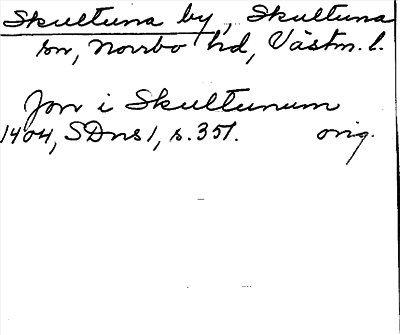 Skultuna by, Skultuna
sn, Norrbo hd, Västm. l.
Jon i Skultunum
1404, SDns 1, s. 351. orig.